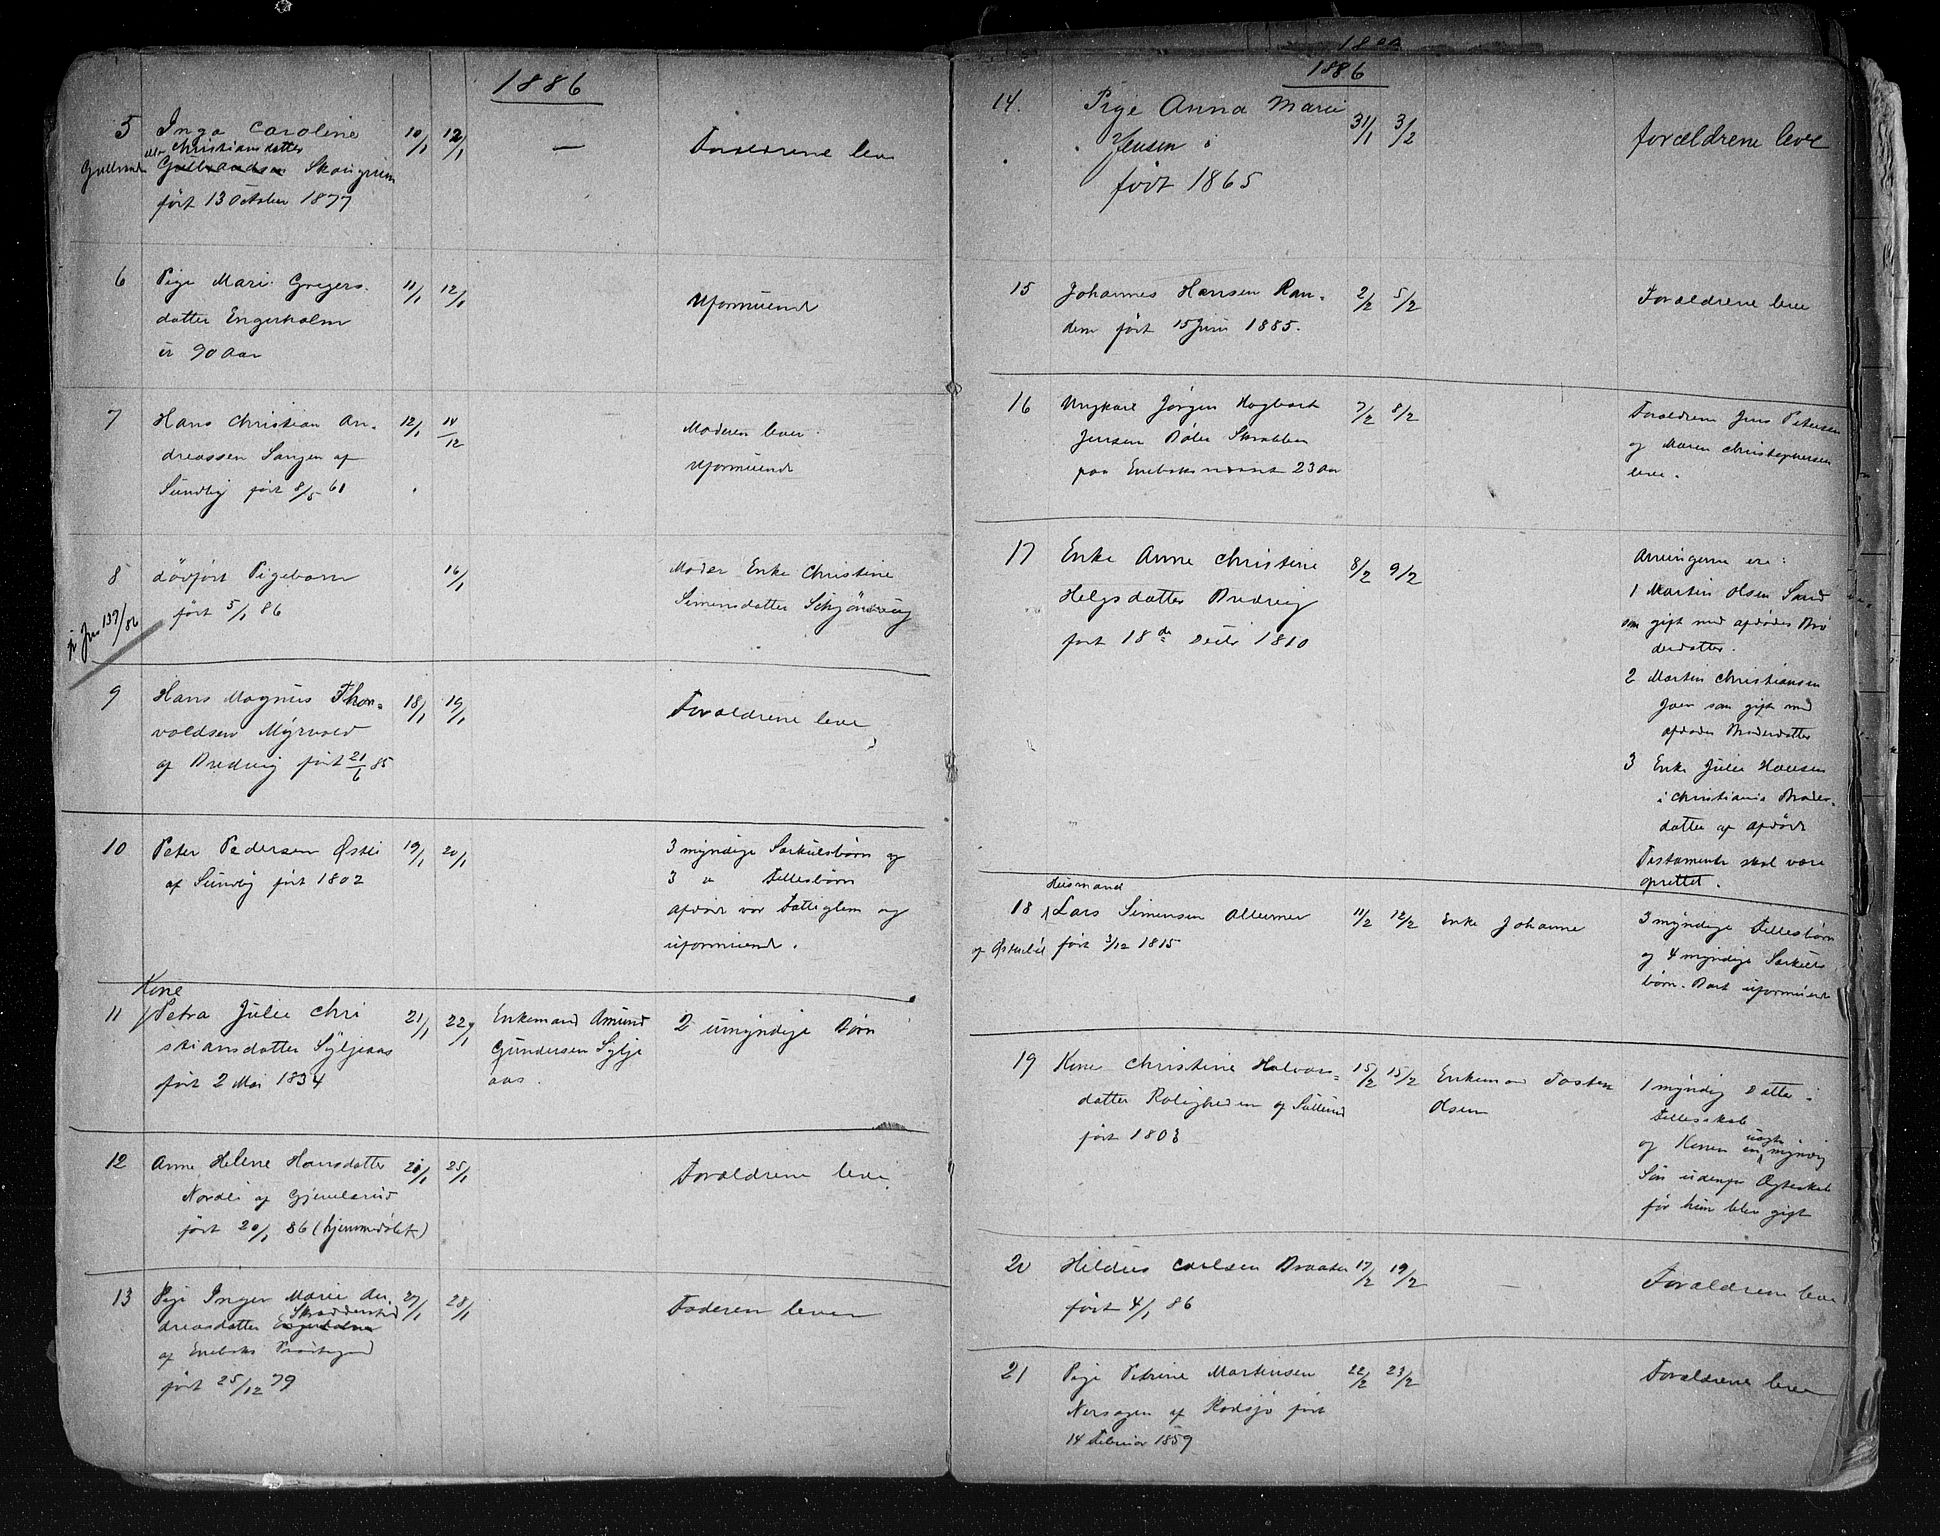 1886
5 Inga Caroline 10/1 12/1 — Forældrene leve
eller Christiansdatter
Gulbrandsen Skougrim
født 13 October 1877
6 Pige Mari Gregers- 11/1 12/1 Uformuende
datter Engerholm
er 90 Aar
7 Hans Christian An- 12/1 14/12 Moderen lever
dreassen Sangen af Uformuende
Sundby født 8/5 61
8 dødfødt Pigebarn 16/1 Moder Enke Christine
født 5/1 86 Simensdatter
139/86
9 Hans Magnus Thor- 18/1 19/1 Forældrene leve
valdsen Myrvold
af Bredvig født 21/6 85
10 Peter Pedersen Østli 19/1 20/1 3 myndige Særkulsbørn og
af Sundby født 1802 3 " Fællesbørn
Afdøde var Fattiglem og
uformuende.
Kone
11 Petra Julie Chri 21/1 22/1 Enkemand Amund 2 umyndige Børn
stiansdatter Syljeaas Gundersen Sylje
født 2 Mai 1834 aas.
12 Anne Helene Hansdatter 20/1 25/1 Forældrene leve
Nordli af Gjevelsrud
født 20/1 86 (hjemmedøbt)
13 Pige Inger Marie An- 27/1 28/1 Faderen lever
dreasdatter Engerholm
af Enebaks Præstegaard
født 25/12 79
1886
14. Pige Anna Marie 31/1 3/2 forældrene leve
Jensen i
født 1865
15 Johannes Hansen Ran- 2/2 5/2 Forældrene leve
dem født 15 Juni 1885.
16 Ungkarl Jørgen Hagbart 7/2 8/2 Forældrene Jens Petersen
Jensen Bøler Skrabben og Maren Christophersen
paa Enebaknesset 23 Aar leve.
17 Enke Anne Christine 8/2 9/2 Arvingerne ere:
Helgsdatter Bredvig 1 Martin Olsen Sand
født 18de Decbr 1810 som gift med afdødes Bro
derdatter.
2 Martin Christiansen
som gift med
afdødes Broderdatter
3 Enke Julie Hansen
i Christiania Broder-
datter af afdøde
Testamente skal være
oprettet.
Husmand
18 Lars Simensen 11/2 12/2 Enke Johanne 3 myndige Fællesbørn
født 3/12 1815 og 4 myndige Særkuls
børn. Boet uformuende
19 Kone Christine Halvors- 15/2 15/2 Enkemand Tosten 1 myndig Datter i
datter Roligheden af Olsen Fællesskab
født 1803 og Konen en uægte myndig
Søn udenfor Ægteskab
før hun blev gift
20 Hildus Carlsen Braaten 17/2 19/2 — Forældrene leve
født 4/1 86
21 Pige Petrine Martinsen 22/2 23/2 Forældrene leve
af født
14 Februar 1859